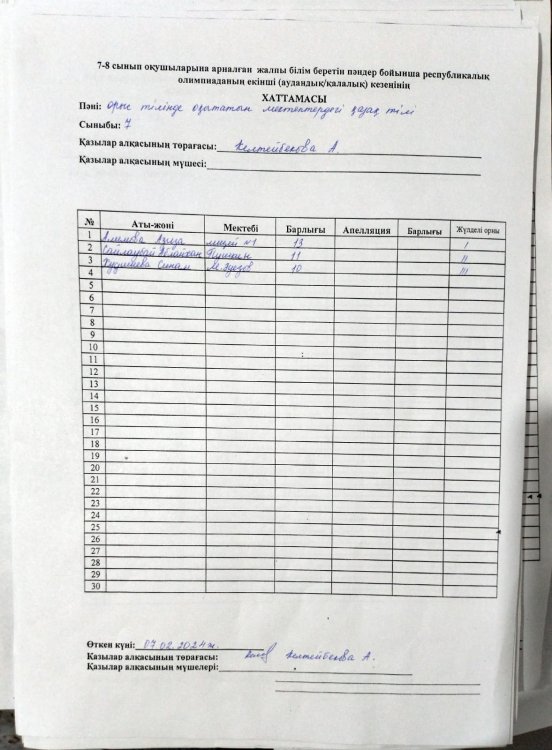 7-8 сынып оқушыларына арналған жалпы білім беретін пәндер бойынша республикалық
олимпиаданың екінші (аудандық/қалалық) кезеңінің
ХАТТАМАСЫ
Пәні: орыс тілінде оқытатын мектептердегі қазақ тілі
Сыныбы: 7
Қазылар алқасының төрағасы: Келтейбекова А.
Қазылар алқасының мүшесі:
№ Аты-жөні Мектебі Барлығы Апелляция Барлығы Жүлделі орны
1 Алимова Азиза лицей №1 13 I
2 Сайлаубай Абылайхан Пушкин 11 II
3 Синам М.Әуезов 10 III
4
5
6
7
8
9
10
11
12
13
14
15
16
17
18
19
20
21
22
23
24
25
26
27
28
29
30
Өткен күні: 07.02.2024ж.
Қазылар алқасының төрағасы: Келтейбекова А.
Қазылар алқасының мүшелері: